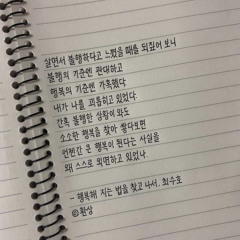 살면서 불행하다고 느꼈을 때를 되짚어 보니
불행의 기준엔 관대하고
행복의 기준엔 가혹했다
내가 나를 괴롭히고 있었다
간혹 불행한 상황이 와도
소소한 행복을 찾아 쌓다보면
언젠간 큰 행복이 된다는 사실을
왜 스스로 외면하고 있었나
- 행복해 지는 법을 찾고 나서, 최수호
©환상